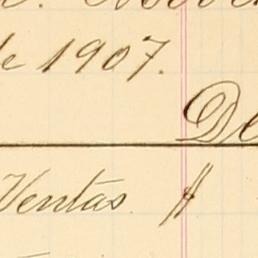 de 1907.
De
Ventas. A